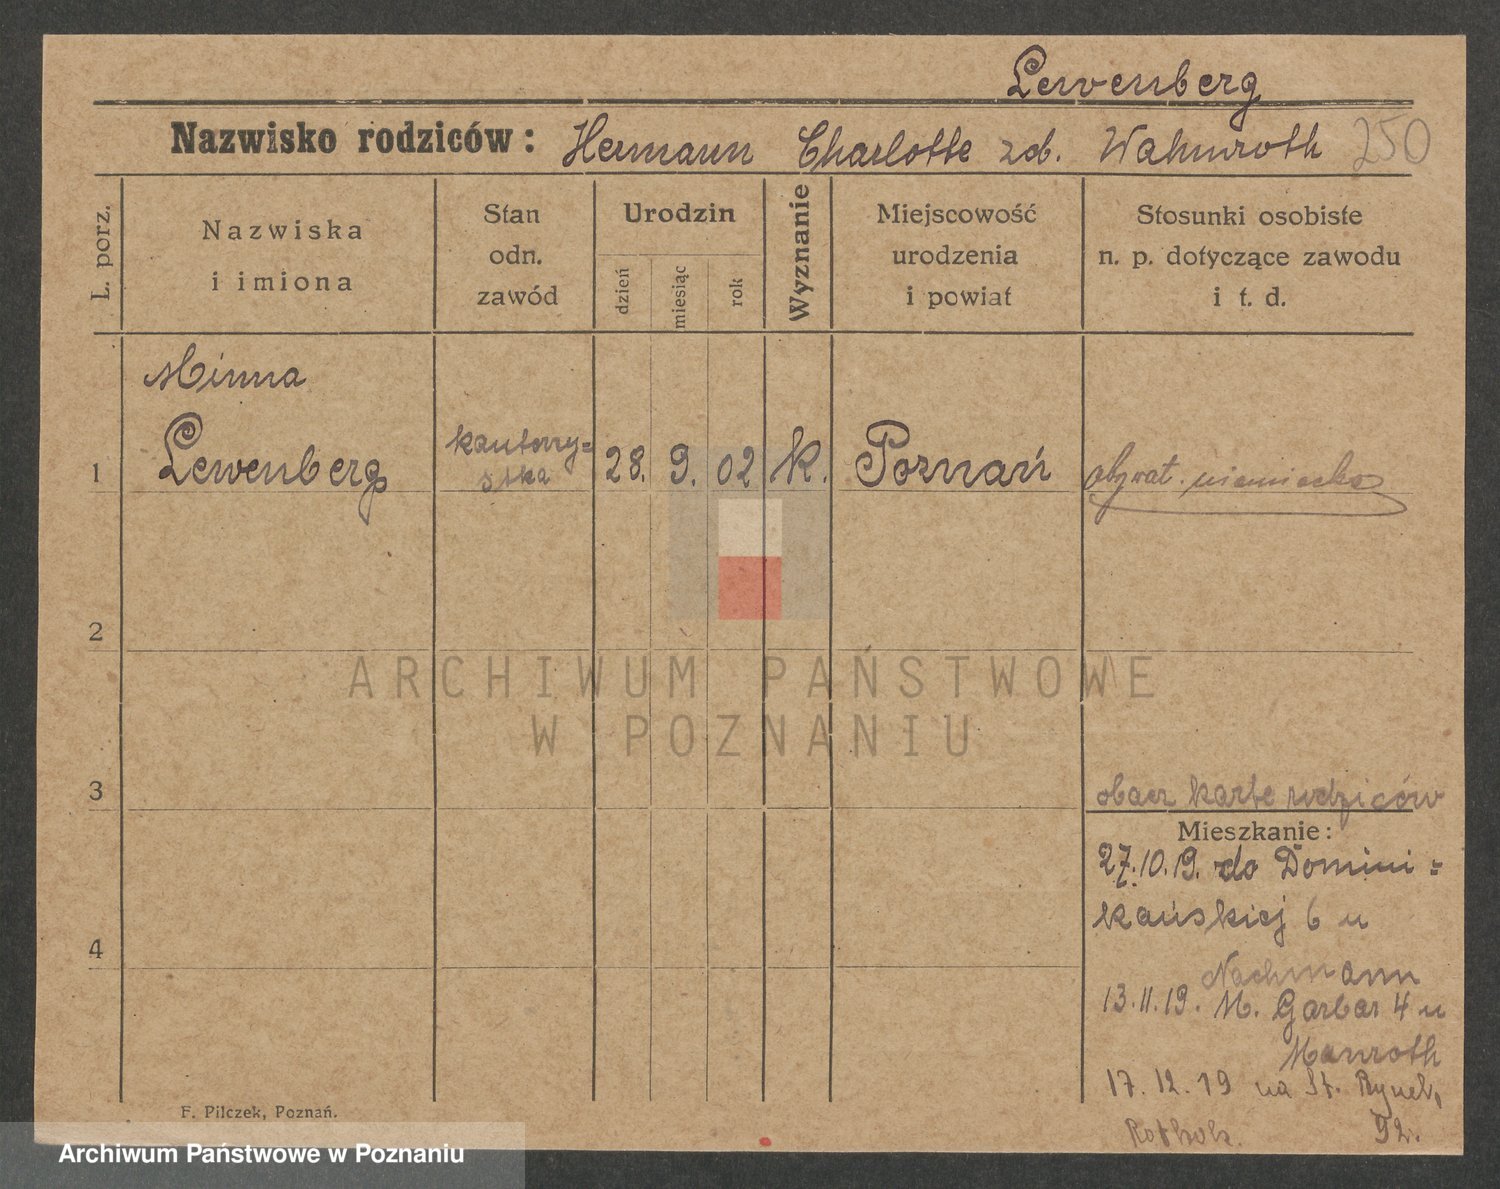 Lewenberg
Nazwisko rodziców: Hermann Charlotte zd. Wahnroth 250
L. porz.
Nazwiska
i imiona
Stan
odn.
zawód
Urodzin
dzień
miesiąc
rok
Wyznanie
Miejscowość
urodzenia
i powiat
Stosunki osobiste
n. p. dotyczące zawodu
i t. d.
Minna
1 Lewenberg kantorzy=
stka 28. 9. 02 k. Poznań obywat. niemiecka
2
3 obacz kartę rodziców
Mieszkanie:
27.10.19. do Domini=
kańskiej 6 u
4
Nachmann
13.11.19. M. Garbar 4 u
Manroth
17.12.19 na St. Rynek,
92.
F. Pilczek, Poznań.
ARCHIWUM PAŃSTWOWE
W POZNANIU
Archiwum Państwowe w Poznaniu